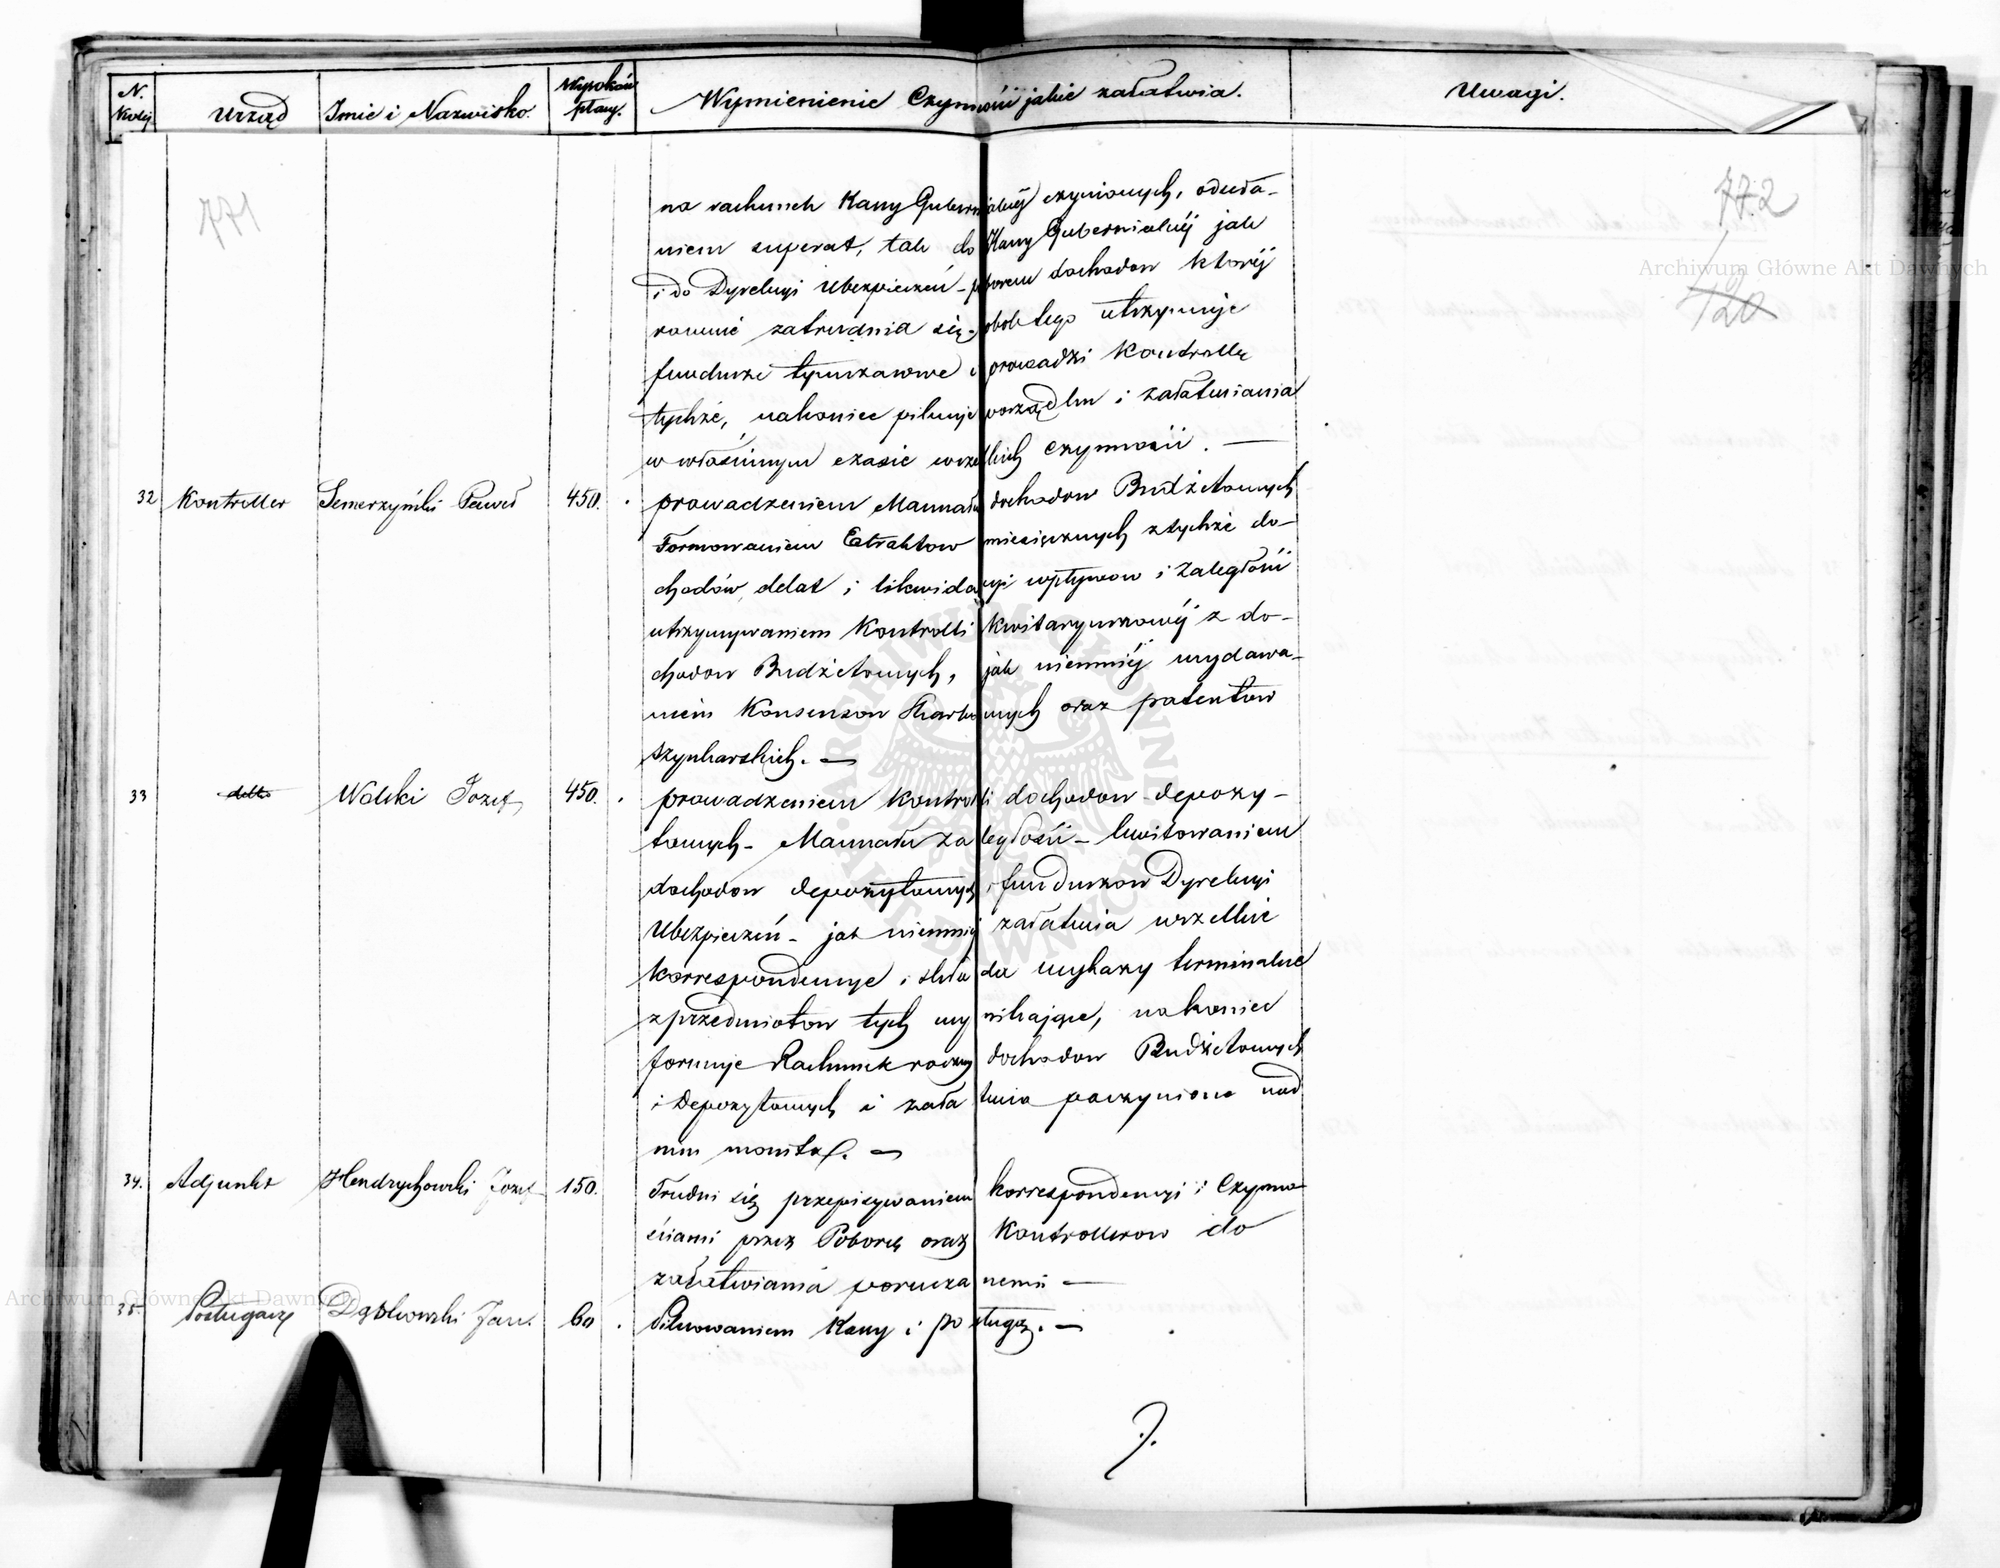 N. Kolej
Urząd
Imie i Nazwisko.
Wysokość płacy.
Wymienienie Czynności jakie załatwia.
Uwagi.
771
772
120
na rachunek Kassy Gubernialnéj czynionych, odsyła-
niem superat, tak do Kassy Gubernialnéj jak
i do Dyrekcyi Ubezpieczeń - poborem dochodow któréj
rownie zatrudnia się, obok tego utrzymuje
fundusze tymczasowe i prowadzi Kontrollę
tychże, nakoniec pilnuje porządku i załatwiania
w właściwym czasie wszelkich czynności. —
32 Kontroller Semerzyński Paweł 450. prowadzeniem Manuału dochodow Budżetowych
Formowaniem Extraktow miesięcznych z tychże do-
chodów, delat i likwidacyi wpływow i zaległości
utrzymywaniem Kontrolli Kwitaryuszowéj z do-
chodow Budżetowych, jak niemniéj wydawa-
niem Konsensow Skarbowych oraz patentow
szynkarskich. —
33 detto Wolski Jozef 450. prowadzeniem Kontrolli dochodow depozy-
towych - Manuału zaległości - kwitowaniem
dochodow depozytowych i funduszow Dyrekcyi
Ubezpieczeń - jak niemniéj załatwia wszelkie
Korrespondencye i składa wykazy terminalne
z przedmiotow tych wynikające, nakoniec
formuje Rachunek roczny dochodow Budżetowych
i Depozytowych i załatwia poczynione nad
nim monita. —
34. Adjunkt Hendrychowski Jozef 150. Trudni się przepisywaniem korrespondencyi i Czynno-
ściami przez Poborcę oraz Kontrollerow do
załatwiania poruczanemi —
35. Posługacz Jan. 60. Pilnowaniem Kassy i posługą. —
Archiwum Główne Akt Dawnych
Archiwum Główne Akt Dawnych
ARCHIWUM GŁÓWNE AKT DAWNYCH